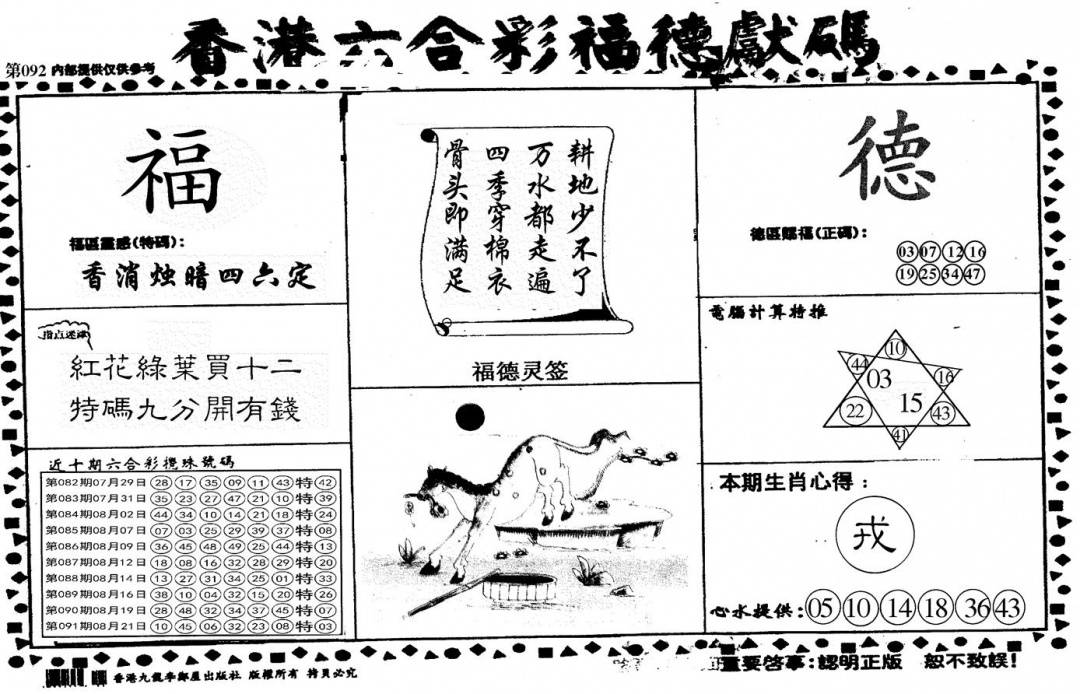 香港六合彩福德獻碼
第092 内部提供仅供参考
福
福區靈感(特碼):
香消烛暗四六定
指点迷津
紅花綠葉買十二
特碼九分開有錢
近十期六合彩攪珠號碼
第082期07月29日 28 17 35 09 11 43 特 42
第083期07月31日 35 23 27 47 21 10 特 39
第084期08月02日 44 34 10 14 21 18 特 24
第085期08月07日 07 03 25 29 39 37 特 08
第086期08月09日 36 45 48 49 25 44 特 13
第087期08月12日 18 08 16 32 28 29 特 20
第088期08月14日 13 27 31 34 25 01 特 33
第089期08月16日 38 10 04 32 15 20 特 26
第090期08月19日 28 48 32 34 37 45 特 07
第091期08月21日 10 45 06 32 23 08 特 03
耕地少不了
万水都走遍
四季穿棉衣
骨头即满足
福德灵签
德
德區賜福(正碼):
03 07 12 16
19 25 34 47
電腦計算特推
10
44 03 16
22 15 43
41
本期生肖心得:
戎
心水提供:05 10 14 18 36 43
香港九龍李鄭屋出版社 版權所有 拷貝必究
重要啓事:認明正版 恕不致誤!